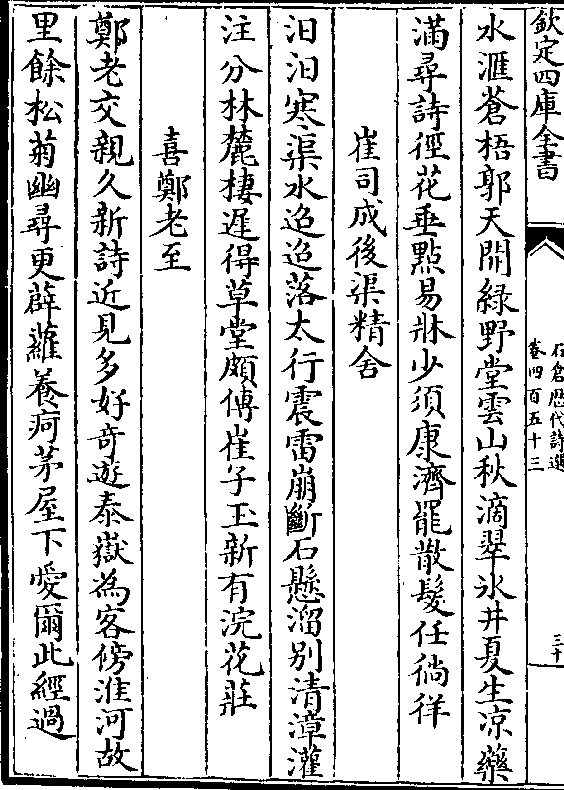 欽定四庫全書
石倉歴代詩選
卷四百五十三
三十
水滙蒼梧郭天開緑野堂雲山秋滴翠氷井夏生凉藥
滿尋詩徑花垂點易牀少須康濟罷散髮任徜徉
崔司成後渠精舍
汨汨寒渠水迢迢落太行震雷崩斷石懸溜别清漳灌
注分林麓棲遲得草堂頗傳崔子玉新有浣花莊
喜鄭老至
鄭老交親久新詩近見多好奇遊泰嶽為客傍淮河故
里餘松菊幽尋更薜蘿養疴茅屋下愛爾此經過